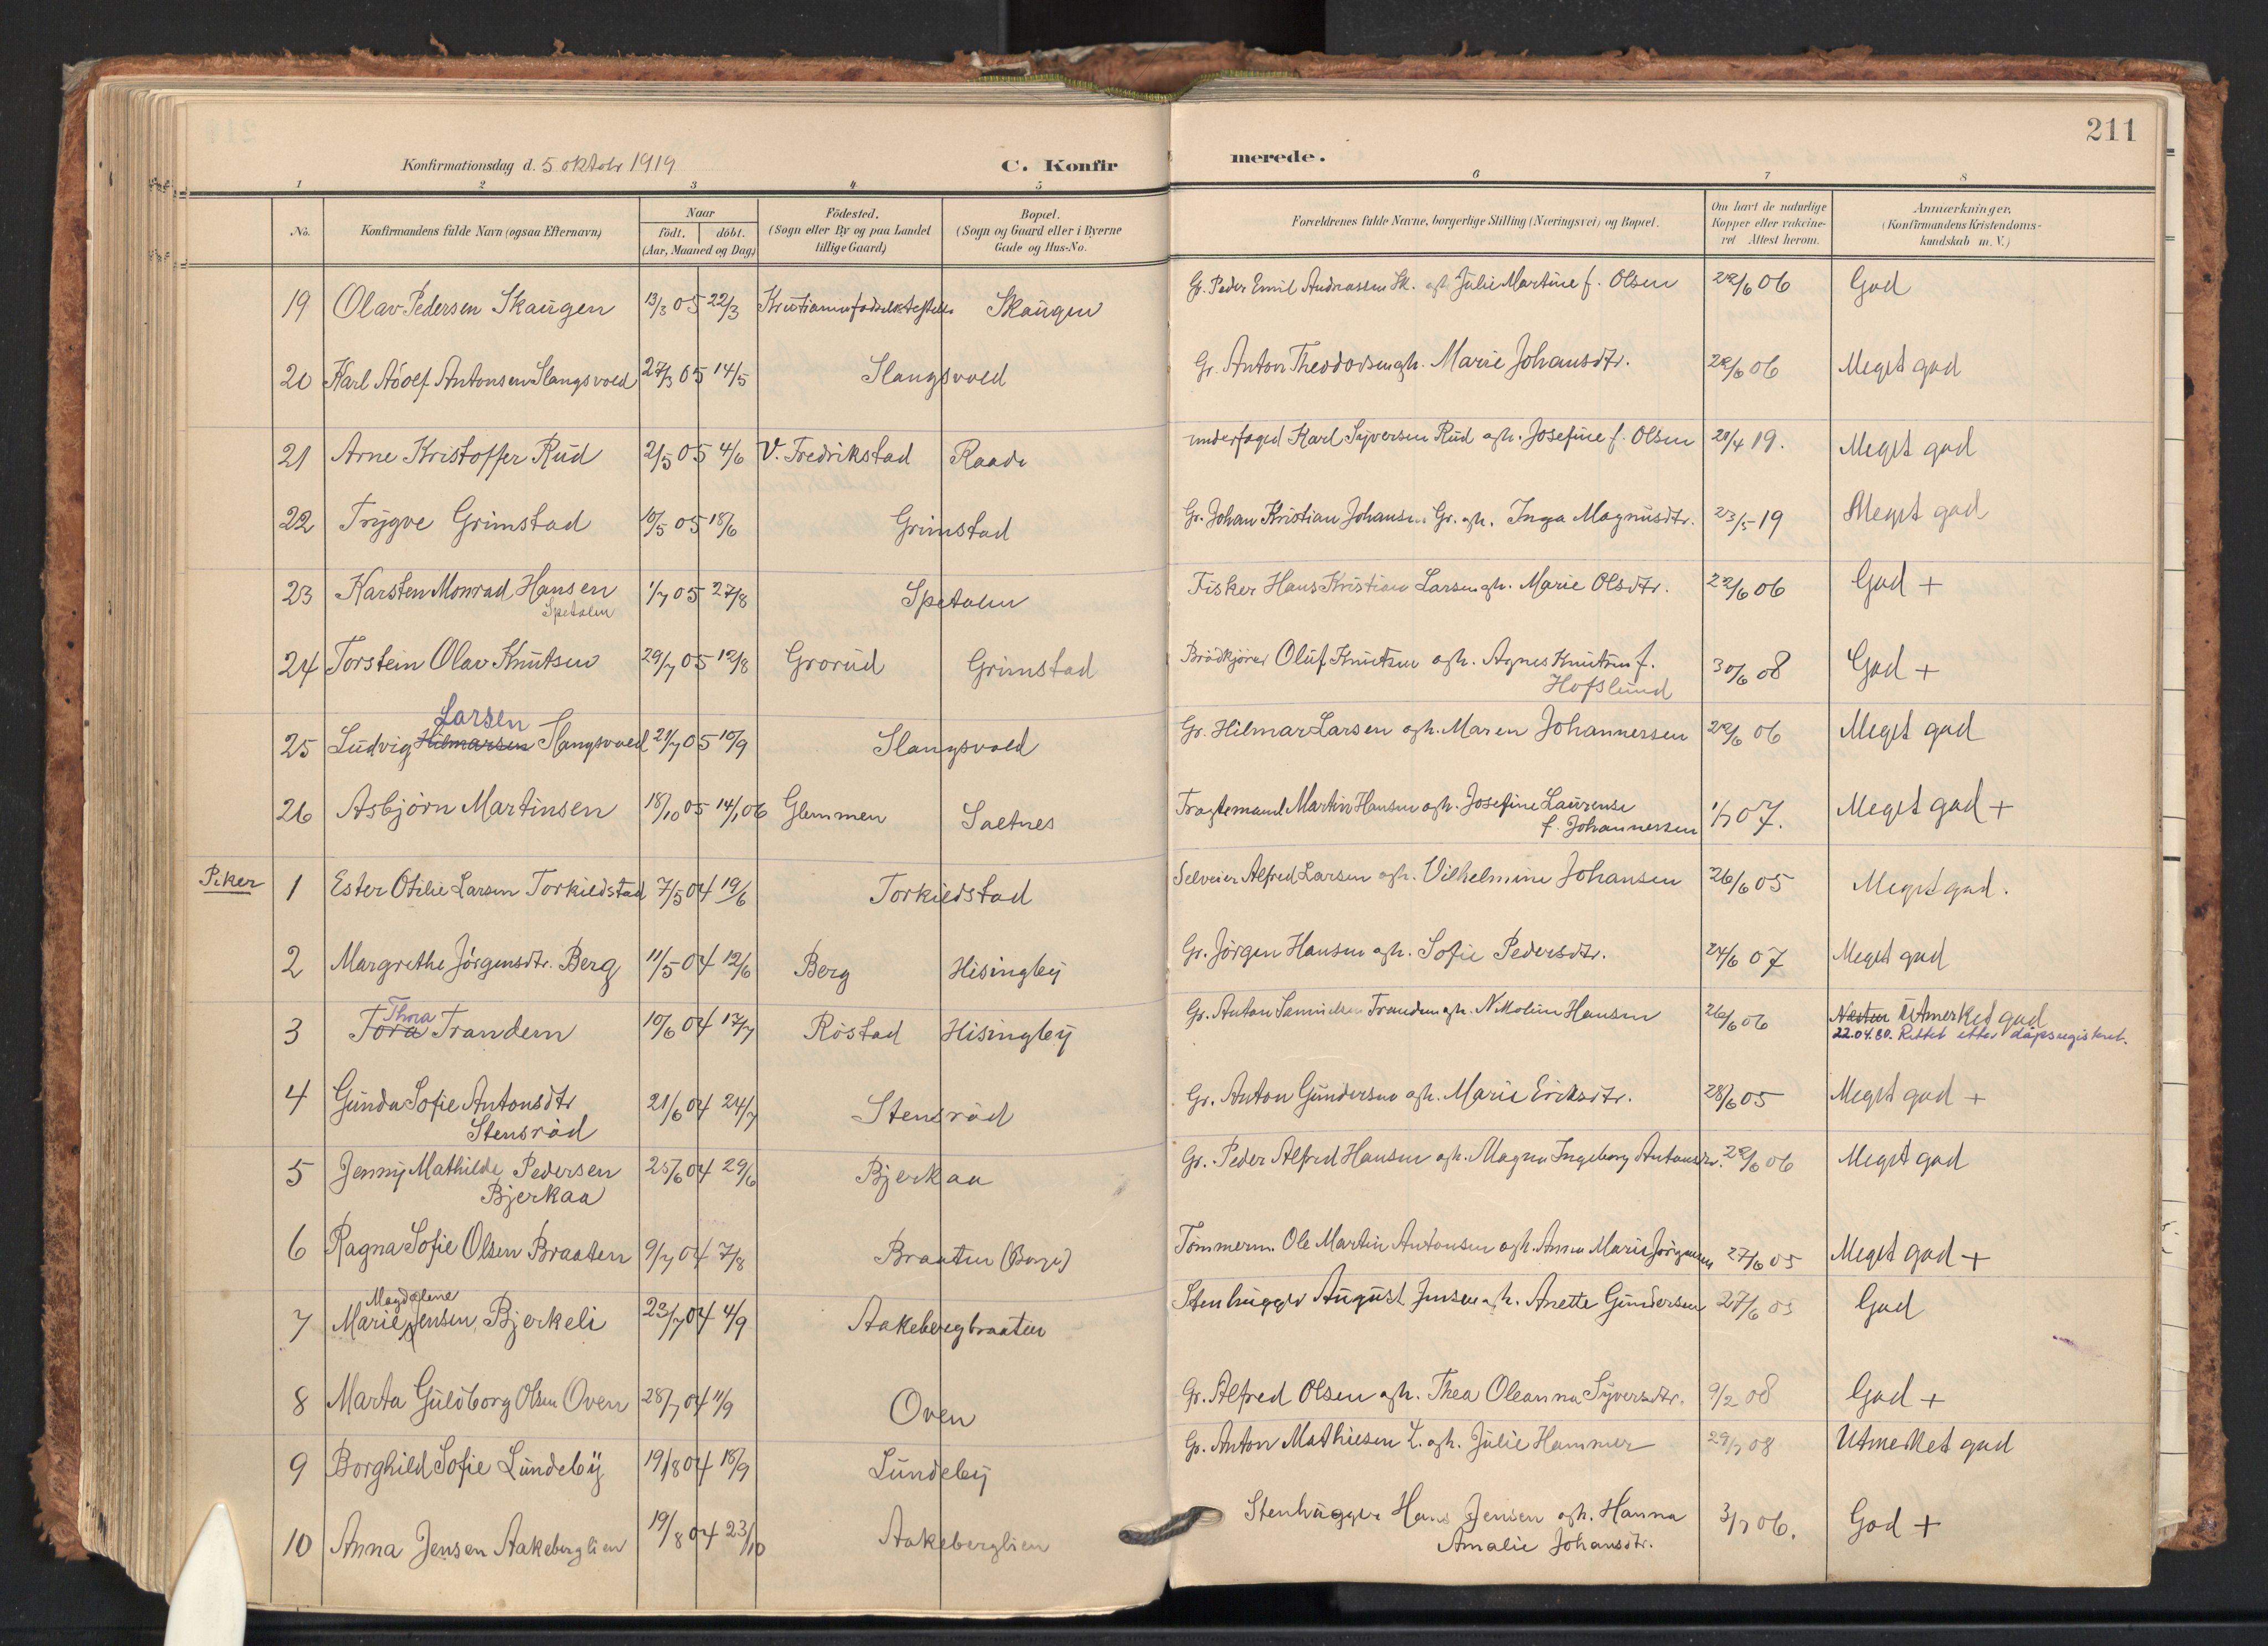 211
Konfirmationsdag d. 5 oktobr 1919 C. Konfirmerede.
1 2 3 4 5 6 7 8
No. Konfirmandens fulde Navn (ogsaa Efternavn) Naar födt. döbt. (Aar, Maaned og Dag) Födested. (Sogn eller By og paa Landet tillige Gaard) Bopæl. (Sogn og Gaard eller i Byerne Gade og Hus-No. Forældrenes fulde Navne, borgerlige Stilling (Næringsvei) og Bopæl. Om havt de naturlige Kopper eller vakcineret Attest herom. Anmærkninger. (Konfirmandens Kristendomskundskab m. V.)
19 Olav Pedersen Skaugen 13/3 05 22/3 Skaugen Gr. Peder Emil Andreassen Sk. og h. Julie Martine f. Olsen 22/6 06 God
20 Karl Adolf Antonsen Slangsvold 27/3 05 14/5 Slangsvold Gr. Anton Theodorsen og h. Marie Johansdtr. 22/6 06 Meget god
21 Arne Kristoffer Rud 2/5 05 4/6 V. Fredrikstad Raade underfoged Karl Syversen Rud og h. Josefine f. Olsen 20/4 19. Meget god
22 Trygve Grimstad 10/5 05 18/6 Grimstad Gr. Johan Kristian Johansen Gr. og h. Inga Magnusdtr. 23/5 19 Meget god
23 Karsten Monrad Hansen 1/7 05 27/8 Spetalen Fisker Hans Kristian Larsen og h. Marie Olsdtr. 22/6 06 God +
Spetalen
24 Torstein Olav Knutsen 29/7 05 12/8 Grorud Grimstad Brödkjörer Oluf Knutsen og h. Agnes Knutsen f. 30/6 08 God +
Hofslund
Larsen
25 Ludvig Hilmarsen Slangsvold 21/7 05 10/9 Slangsvold Gr. Hilmar Larsen og h. Maren Johannessen 22/6 06 Meget god
26 Asbjörn Martinsen 18/10 05 14/1 06 Glemmen Saltnes Martin Hansen og h. Josefine Laurense 1/7 07. Meget god +
f. Johannessen
Piker 1 Ester Otilie Larsen Torkildstad 7/5 04 19/6 Torkildstad Selveier Alfred Larsen og h. Vilhelmine Johansen 26/6 05 Meget god.
2 Margrethe Jörgensdtr. Berg 11/5 04 12/6 Berg Hisingby Gr. Jörgen Hansen og h. Sofie Pedersdtr. 24/6 07 Meget god
Thora
3 Tora Trandem 10/6 04 17/7 Röstad Hisingby Gr. Anton Samuelsen Trandem og h. Nikoline Hansen 26/6 06 Næsten Utmerket god
22.04.80. Rettet etter dåpsregisteret.
4 Gunda Sofie Antonsdtr 21/6 04 24/7 Stensröd Gr. Anton Gundersen og h. Marie Eriksdtr. 28/6 05 Meget god +
Stensröd
5 Jenny Mathilde Pedersen 25/6 04 29/6 Bjerkaa Gr. Peder Alfred Hansen og h. Magna Ingeborg Antonsdtr. 22/6 06 Meget god
Bjerkaa
6 Ragna Sofie Olsen Braaten 9/7 04 7/8 Braaten (Borge) Tömmerm. Ole Martin Antonsen og h. Anna Marie Jörgensen 27/6 05 Meget god +
Magdalene
7 Marie Jensen, Bjerkeli 23/7 04 4/9 Aakebergbraaten Stenhugger August Jensen og h. Anette Gundersen 27/6 05 God
8 Marta Guldborg Olsen Oven 28/7 04 11/9 Oven Gr. Alfred Olsen og h. Thea Oleanna Syversdtr. 9/2 08 God +
9 Borghild Sofie Lundeby 19/8 04 18/9 Lundeby Gr. Anton Mathiesen L. og h. Julie Hammer 29/7 08 Utmerket god
10 Anna Jensen Aakeberglien 19/8 04 23/10 Aakeberglien Stenhugger Hans Jensen og h. Hanna 3/7 06. God +
Amalie Johansdtr.